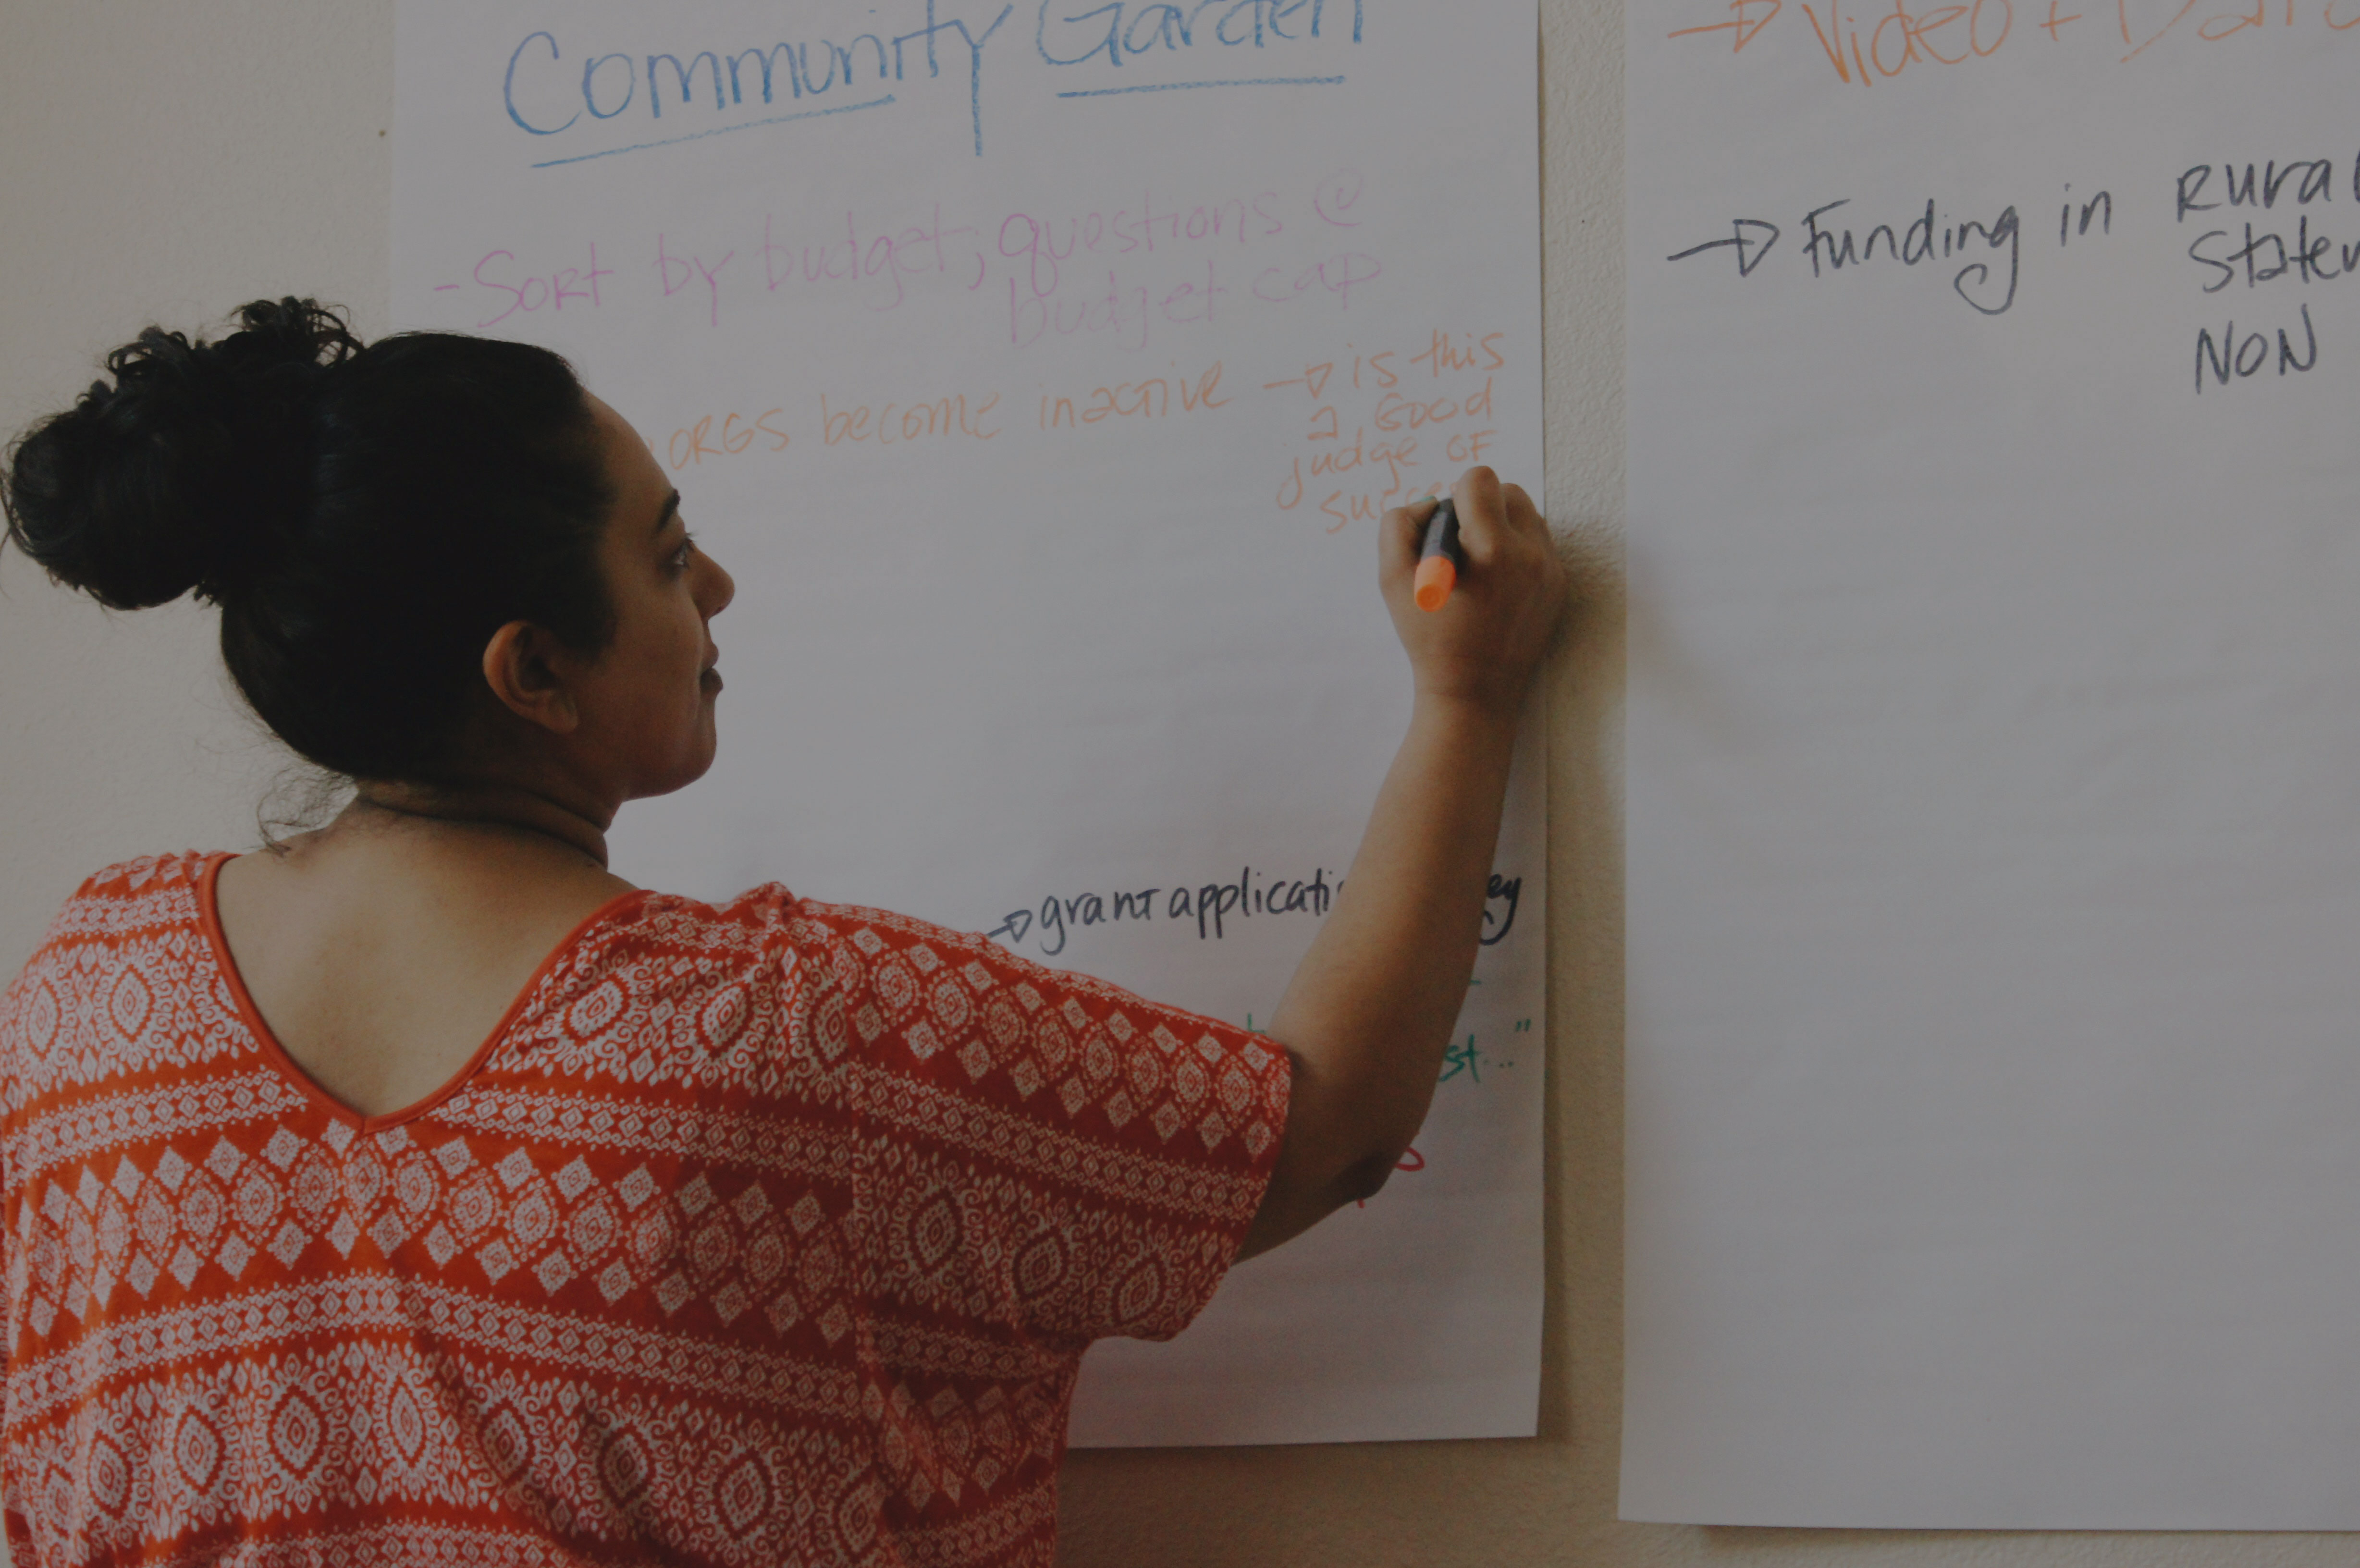 Community Garden
- Sort by budget; questions @
budget cap
ORGS become inactive → is this
a good
judge of
→ grant
→ Video +
→ Funding in Rural
NON